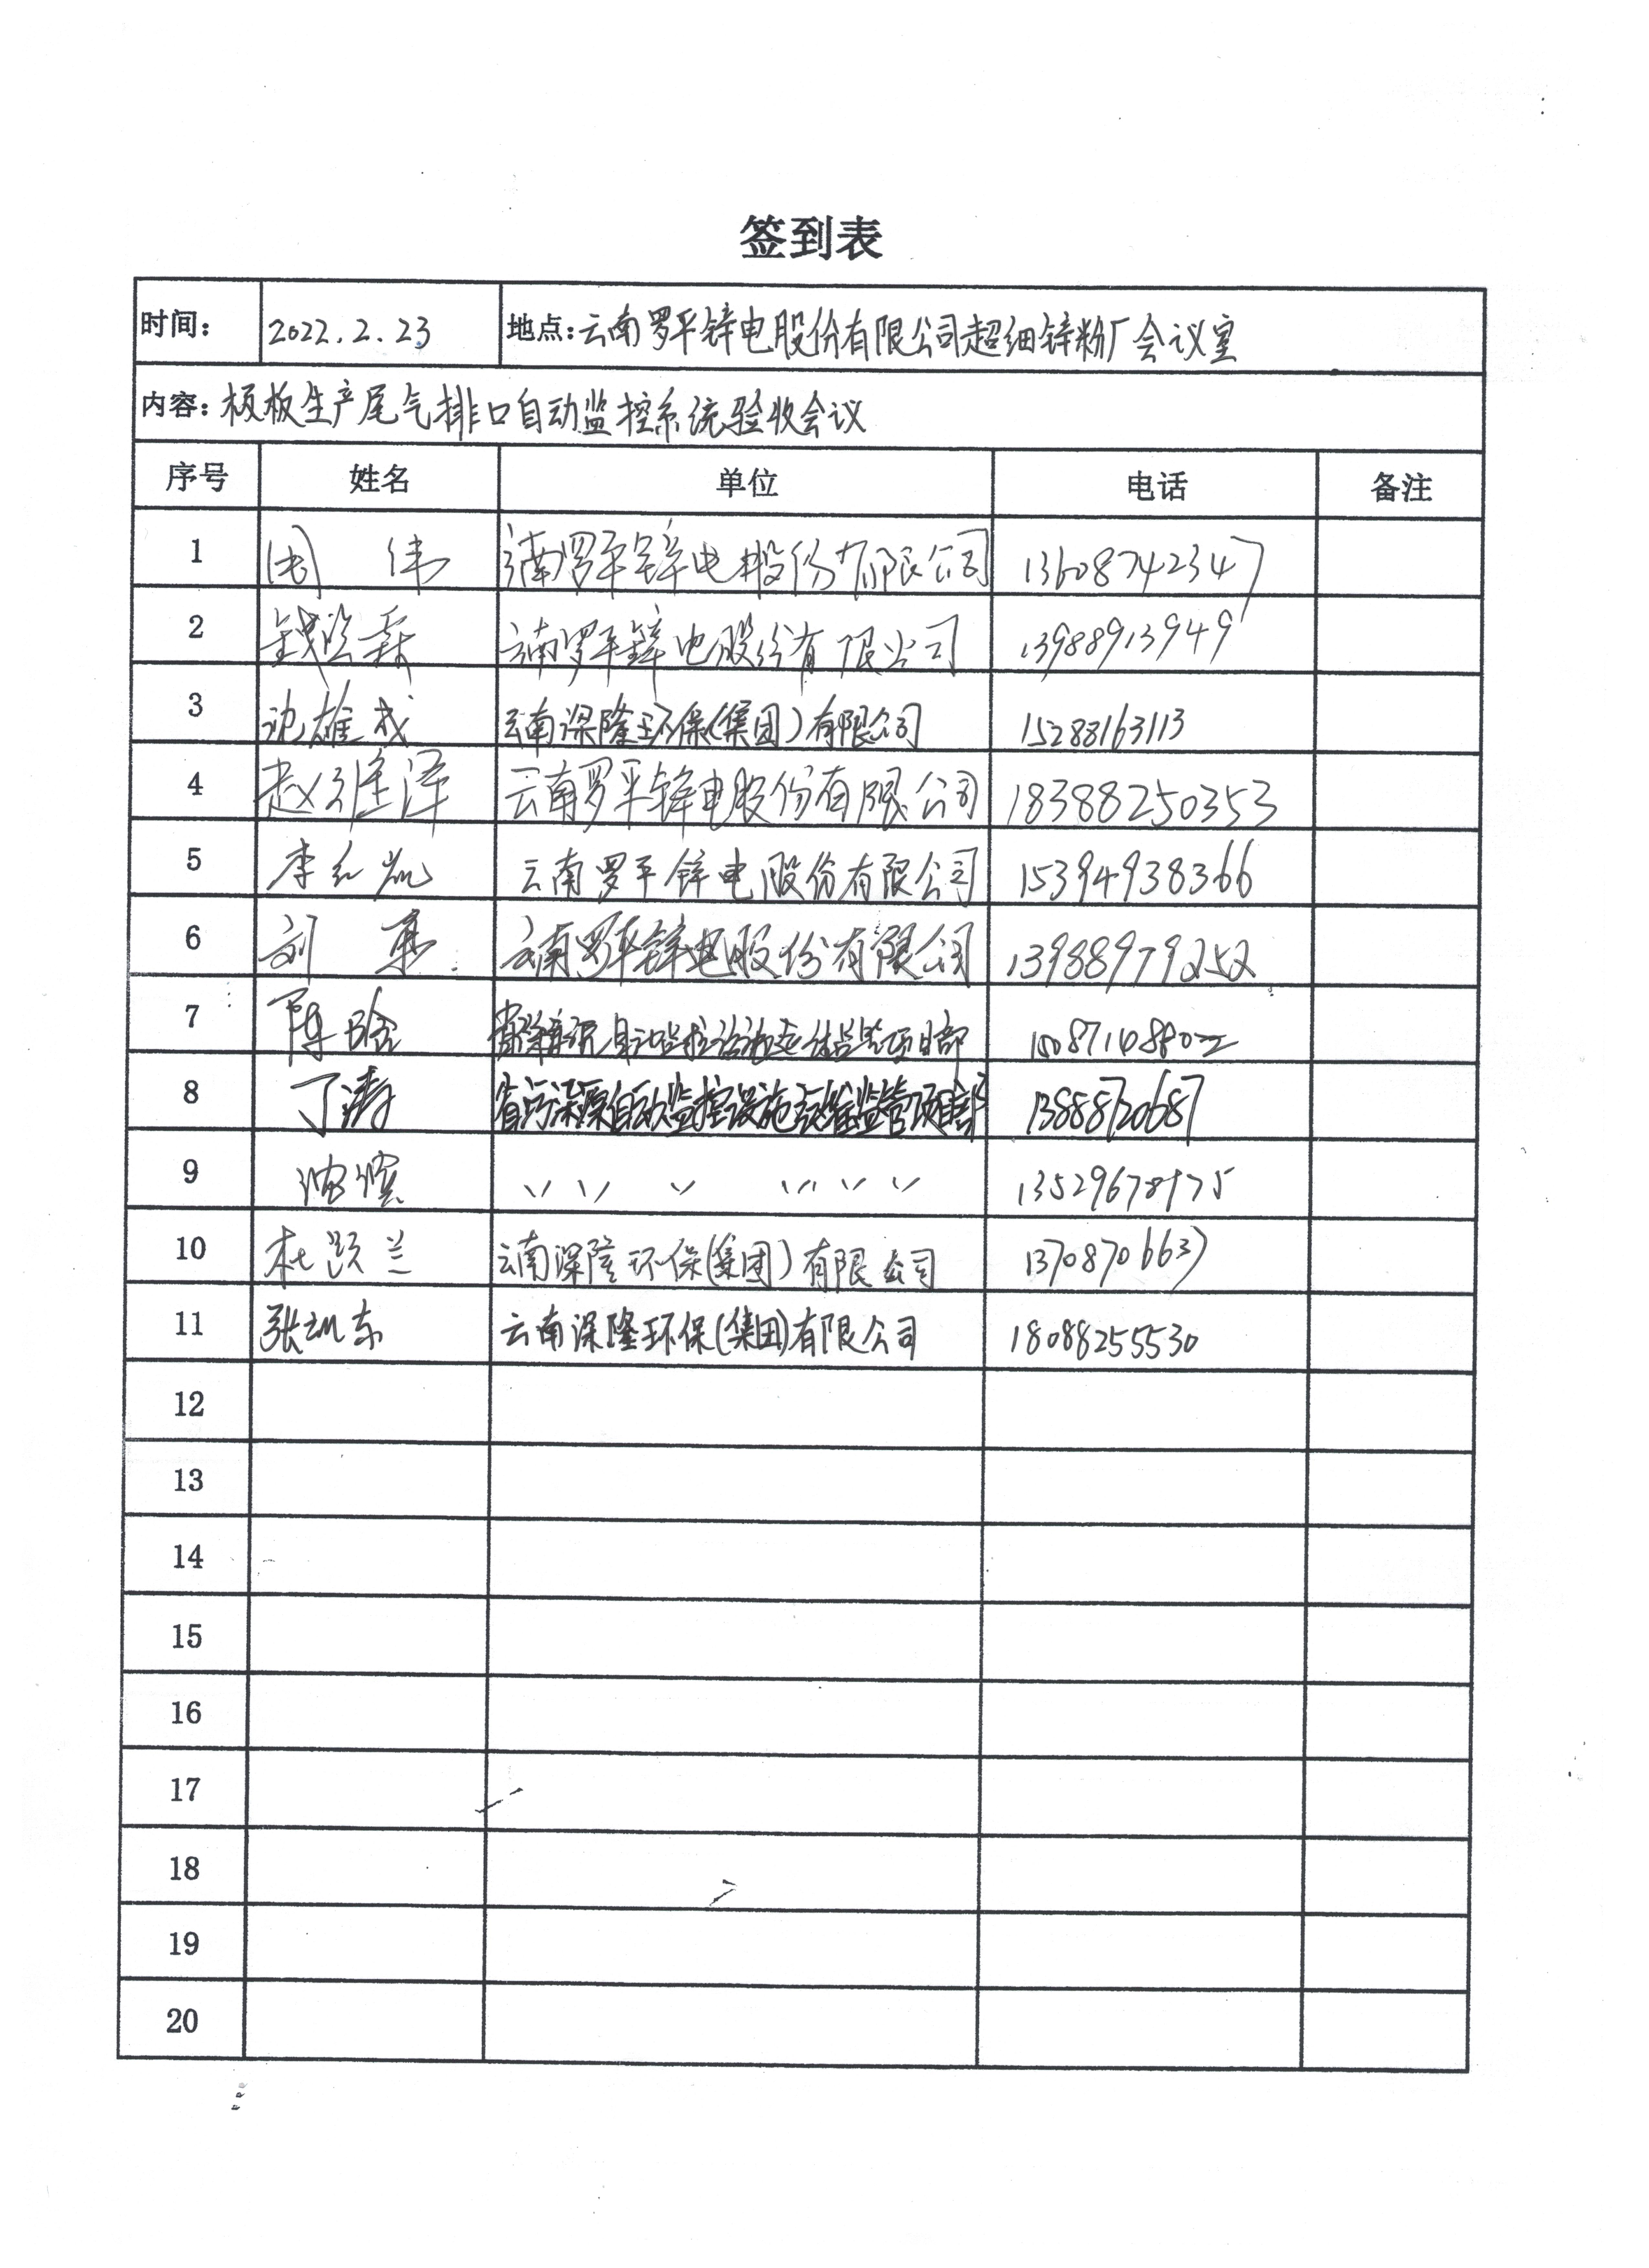 签到表
时间： 2022.2.23 地点：云南罗平锌电股份有限公司超细锌粉厂会议室
内容：极板生产尾气排口自动监控系统验收会议
序号 姓名 单位 电话 备注
1 周伟 云南罗平锌电股份有限公司 13608742347
2 云南罗平锌电股份有限公司 13988913949
3 沈雄成 云南深隆环保(集团)有限公司 15288163113
4 赵维泽 云南罗平锌电股份有限公司 18388250353
5 李红凯 云南罗平锌电股份有限公司 15394938366
6 刘 云南罗平锌电股份有限公司 13988979252
7 陈晗
8 丁涛 省污染源自动监控设施运维监管项目部 13888720687
9 〃 〃 〃 〃 〃 〃
10 杜跃兰 云南深隆环保(集团)有限公司 13708706637
11 张凯东 云南深隆环保(集团)有限公司 18088255530
12
13
14
15
16
17
18
19
20